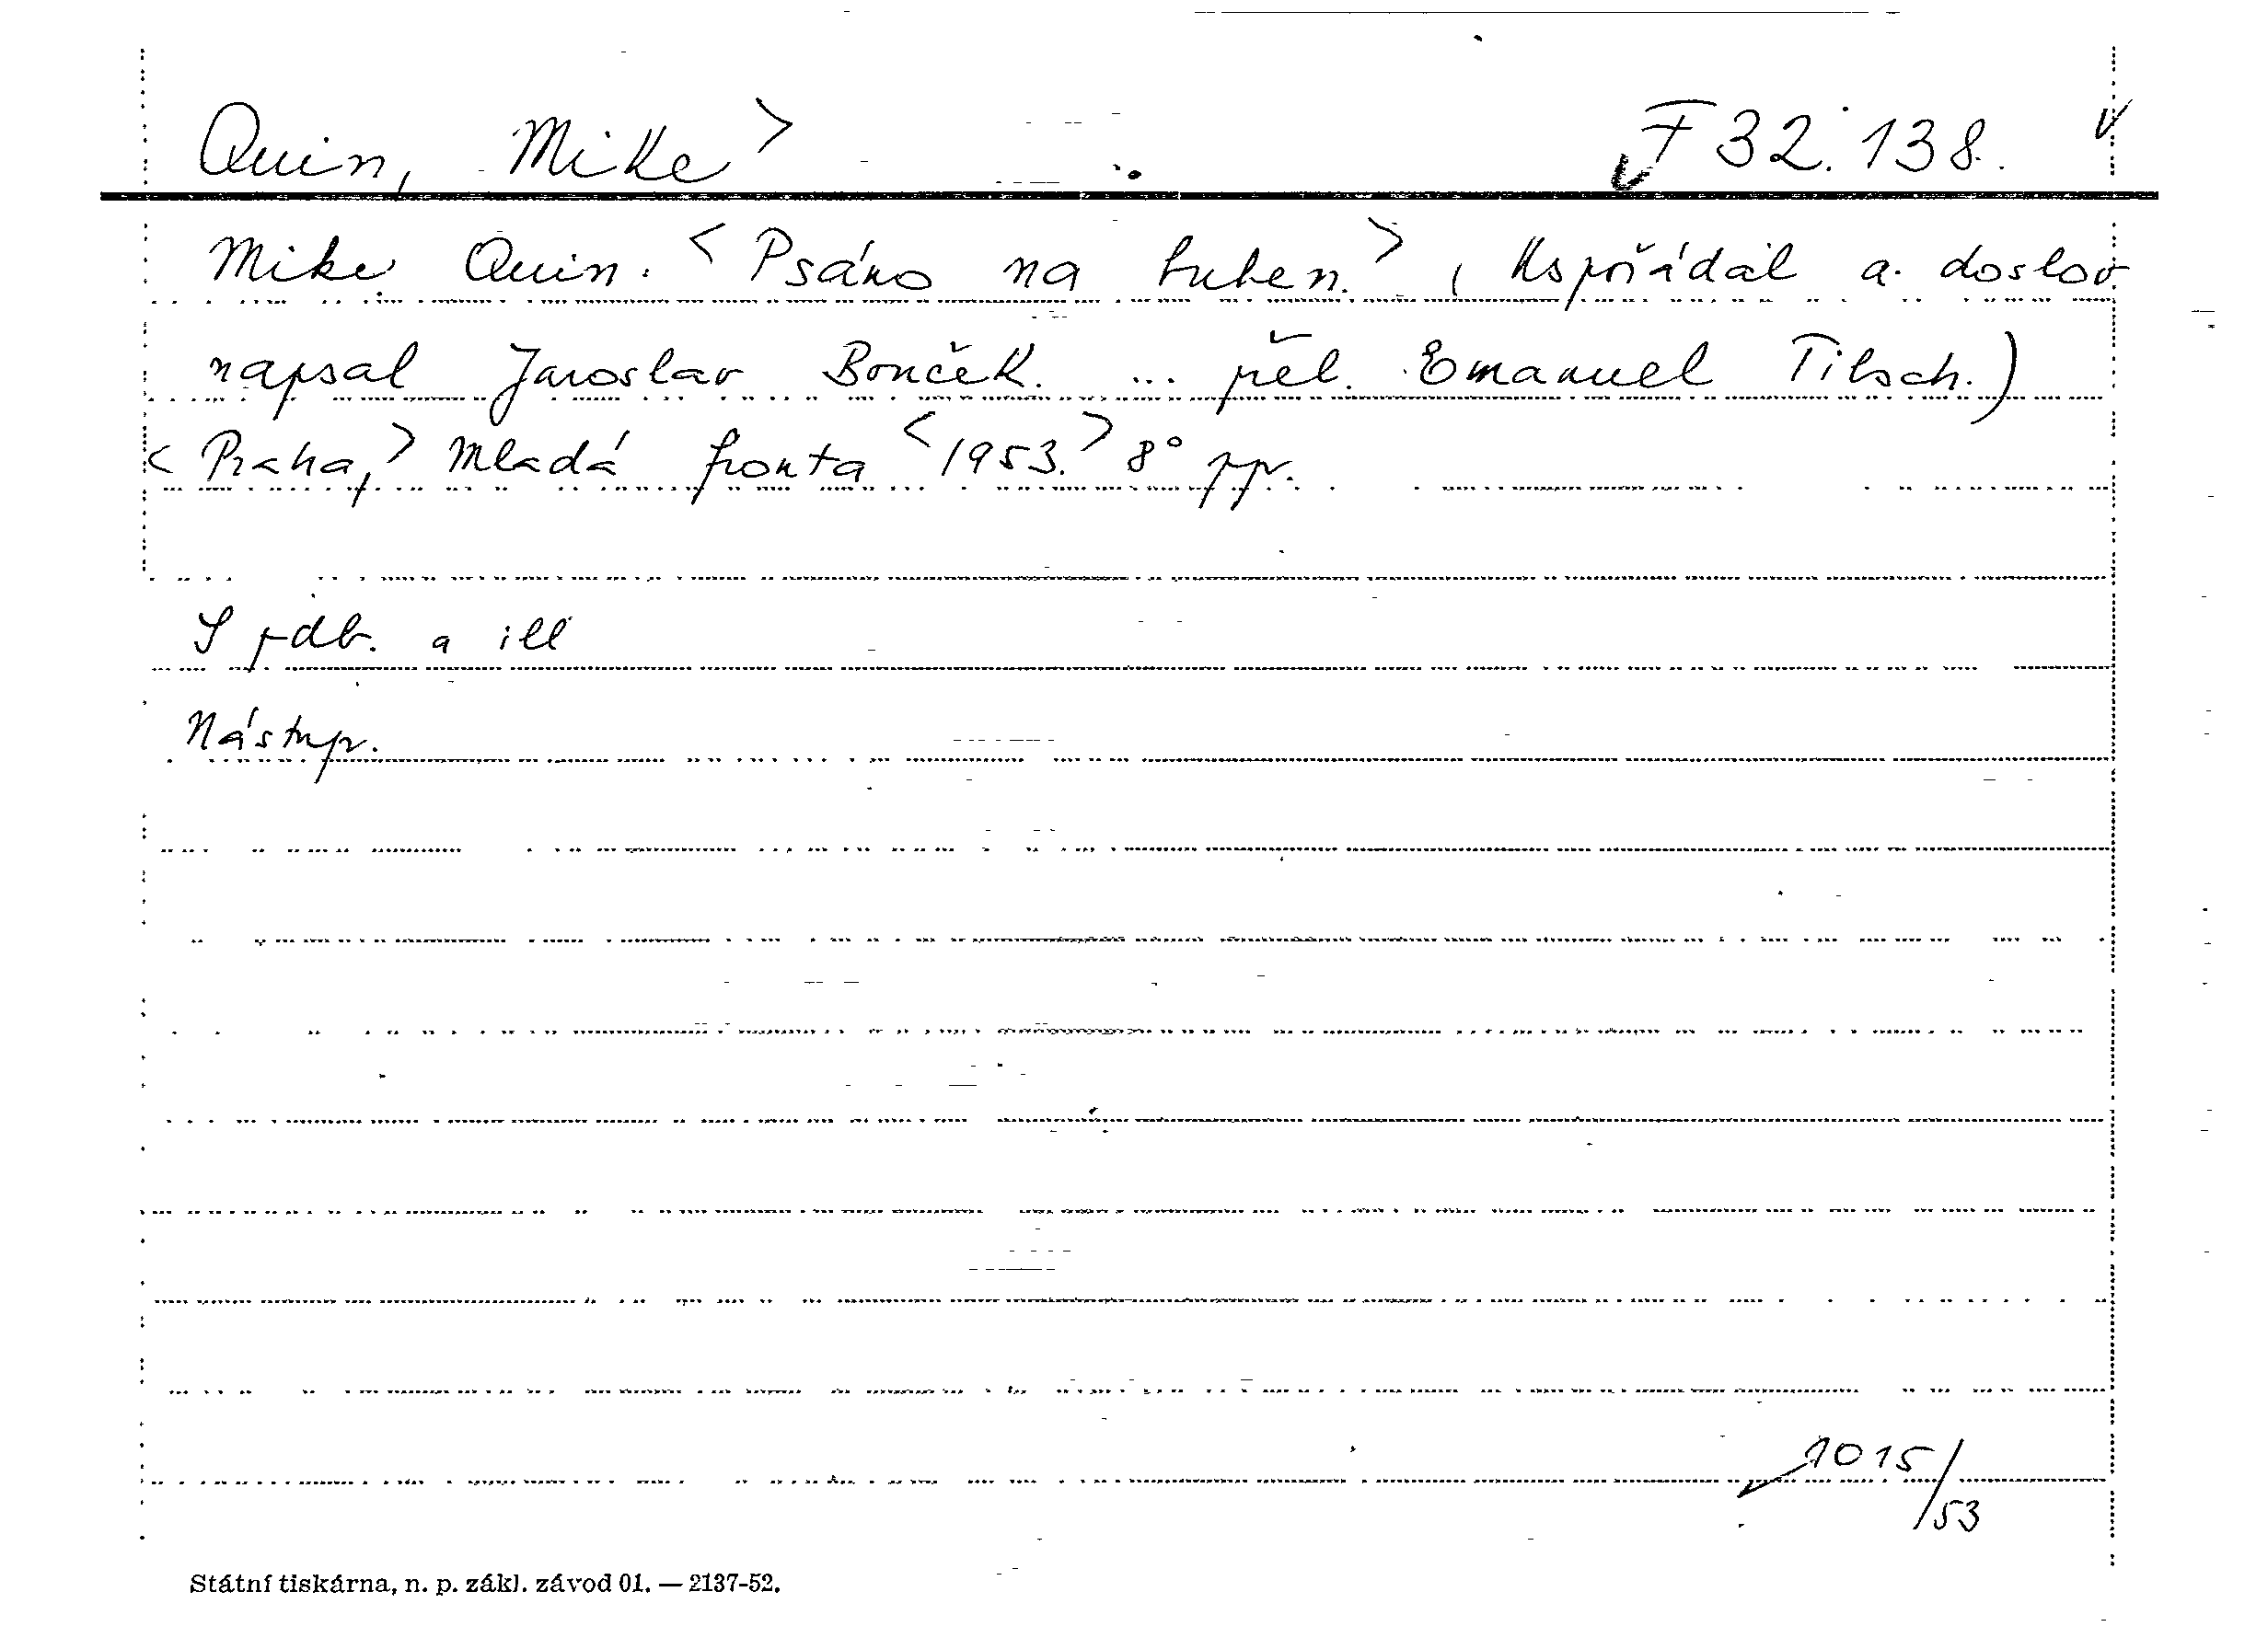 Quin, Mike> F 32.138.
Mike Quin. <Psáno na buben.> (Uspořádal a doslov
napsal Jaroslav Bouček. ... přel. Emanuel Tilsch.)
<Praha,> Mladá fronta <1953.> 8° ppr.
S pdb. a ill
Nástup.
1015/53
Státní tiskárna, n. p. zákl. závod 01. — 2137-52.